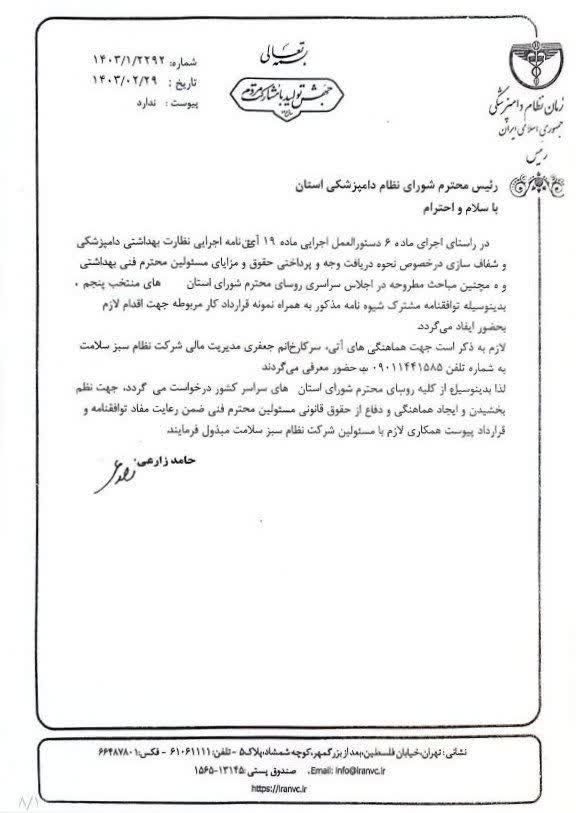 بسمه تعالی
جهش تولید با مشارکت مردم
شماره: ۱۴۰۳/۱/۲۲۹۲
تاریخ : ۱۴۰۳/۰۲/۲۹
پیوست : ندارد
زمان نظام دامپزشکی
جمهوری اسلامی ایران
رئیس
رئیس محترم شورای نظام دامپزشکی استان
با سلام و احترام
در راستای اجرای ماده ۶ دستورالعمل اجرایی ماده ۱۹ آیین نامه اجرایی نظارت بهداشتی دامپزشکی
و شفاف سازی درخصوص نحوه دریافت وجه و پرداختی حقوق و مزایای مسئولین محترم فنی بهداشتی
و ه مچنین مباحث مطروحه در اجلاس سراسری روسای محترم شورای استان های منتخب پنجم ،
بدینوسیله توافقنامه مشترک شیوه نامه مذکور به همراه نمونه قرارداد کار مربوطه جهت اقدام لازم
بحضور ایفاد می‌گردد.
لازم به ذکر است جهت هماهنگی های آتی، سرکارخانم جعفری مدیریت مالی شرکت نظام سبز سلامت
به شماره تلفن ۰۹۰۱۱۴۴۱۵۸۵ حضور معرفی می‌گردند
لذا بدینوسیله از کلیه روسای محترم شورای استان های سراسر کشور درخواست می گردد، جهت نظم
بخشیدن و ایجاد هماهنگی و دفاع از حقوق قانونی مسئولین محترم فنی ضمن رعایت مفاد توافقنامه و
قرارداد پیوست همکاری لازم با مسئولین شرکت نظام سبز سلامت مبذول فرمایند.
حامد زارعی
نشانی: تهران،خیابان فلسطین،بعد از بزرگمهر،کوچه شمشاد،پلاک۵ - تلفن:۶۱۰۶۱۱۱۱ - فکس:۶۶۴۸۷۸۰۱
Email: info@iranvc.ir. صندوق پستی:۱۳۱۴۵-۱۵۶۵
https://iranvc.ir
۸/۱